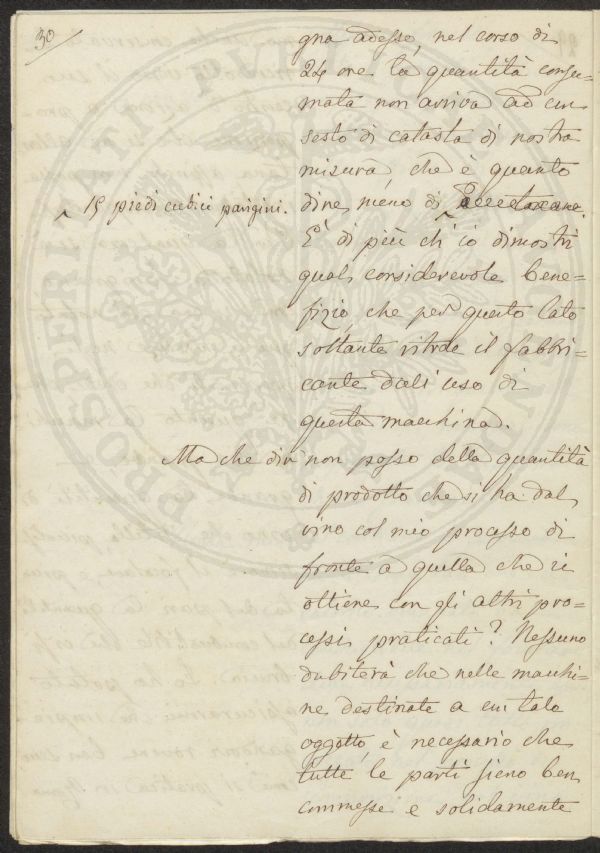 30
gna adesso, nel corso di
24 ore la quantità consu-
mata non arriva ad un
sesto di catasta di nostra
misura, che è quanto
dire meno di
15 piedi cubici parigini.
È di più ch'io dimostri
qual considerevole bene=
fizio, che per questo lato
soltanto ritrae il fabbri=
cante dall'uso di
questa macchina.
Ma che dir non posso della quantità
di prodotto che si ha dal
vino col mio processo di
fronte a quella che si
ottiene con gli altri pro=
cessi praticati? Nessuno
dubiterà che nelle macchi=
ne destinate a un tale
oggetto, è necessario che
tutte le parti sieno ben
commesse e solidamente
PROSPERITATI PUBLICAE